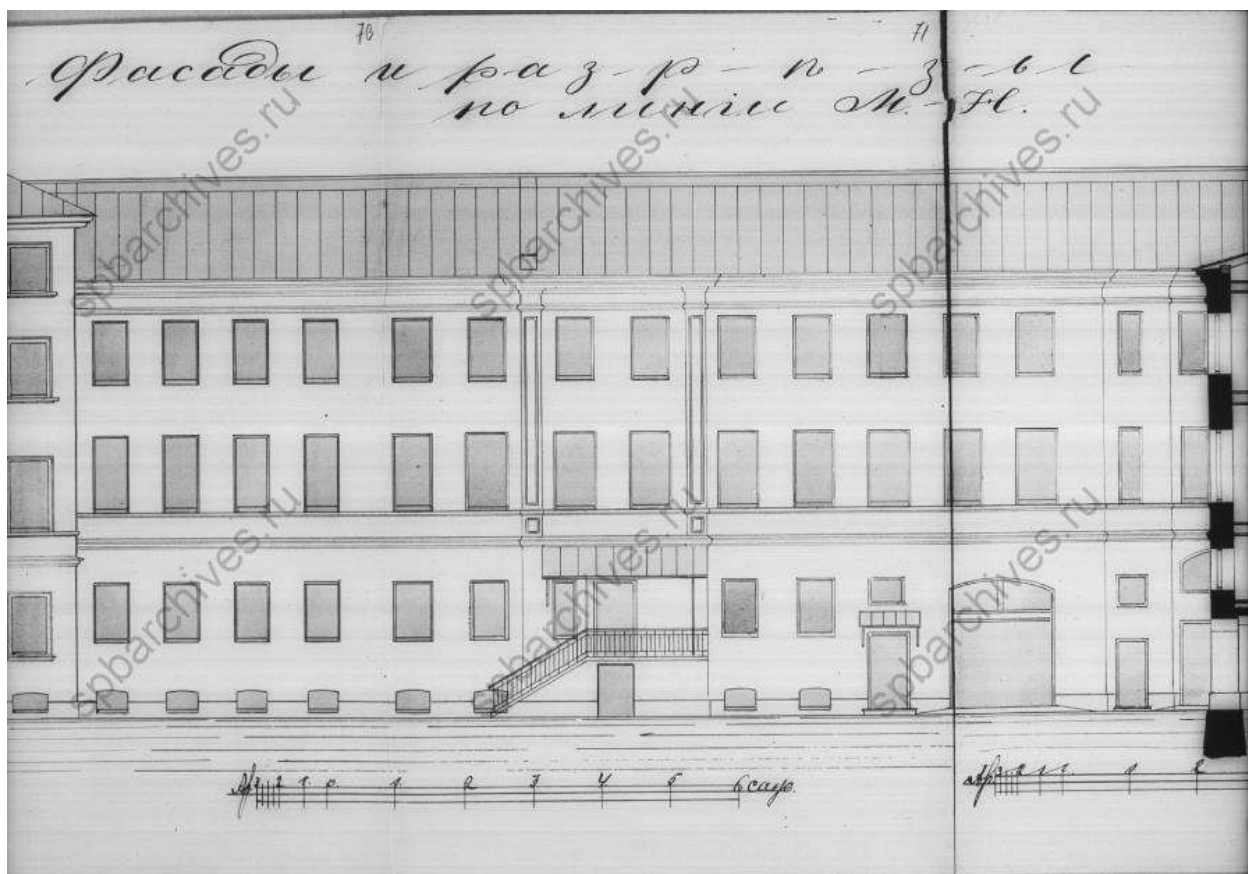 70 71
Фасады и р а з-р-ѣ-з-ы
по линіи М.-Н.
spbarchives.ru spbarchives.ru spbarchives.ru
spbarchives.ru spbarchives.ru spbarchives.ru
Ар 3 2 1 0. 1 2 3 4 5 6 саж.
Ар. 3 2 1 1 2